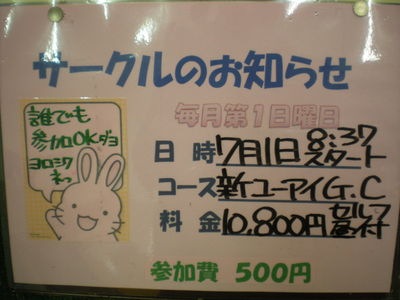 サークルのお知らせ
毎月第1日曜日
誰でも
参加OKダヨ
ヨロシク
ネっ
日 時 7月1日 8:37スタート
コース 新ユーアイG.C
料 金 10,800円セルフ昼付
参加費 500円